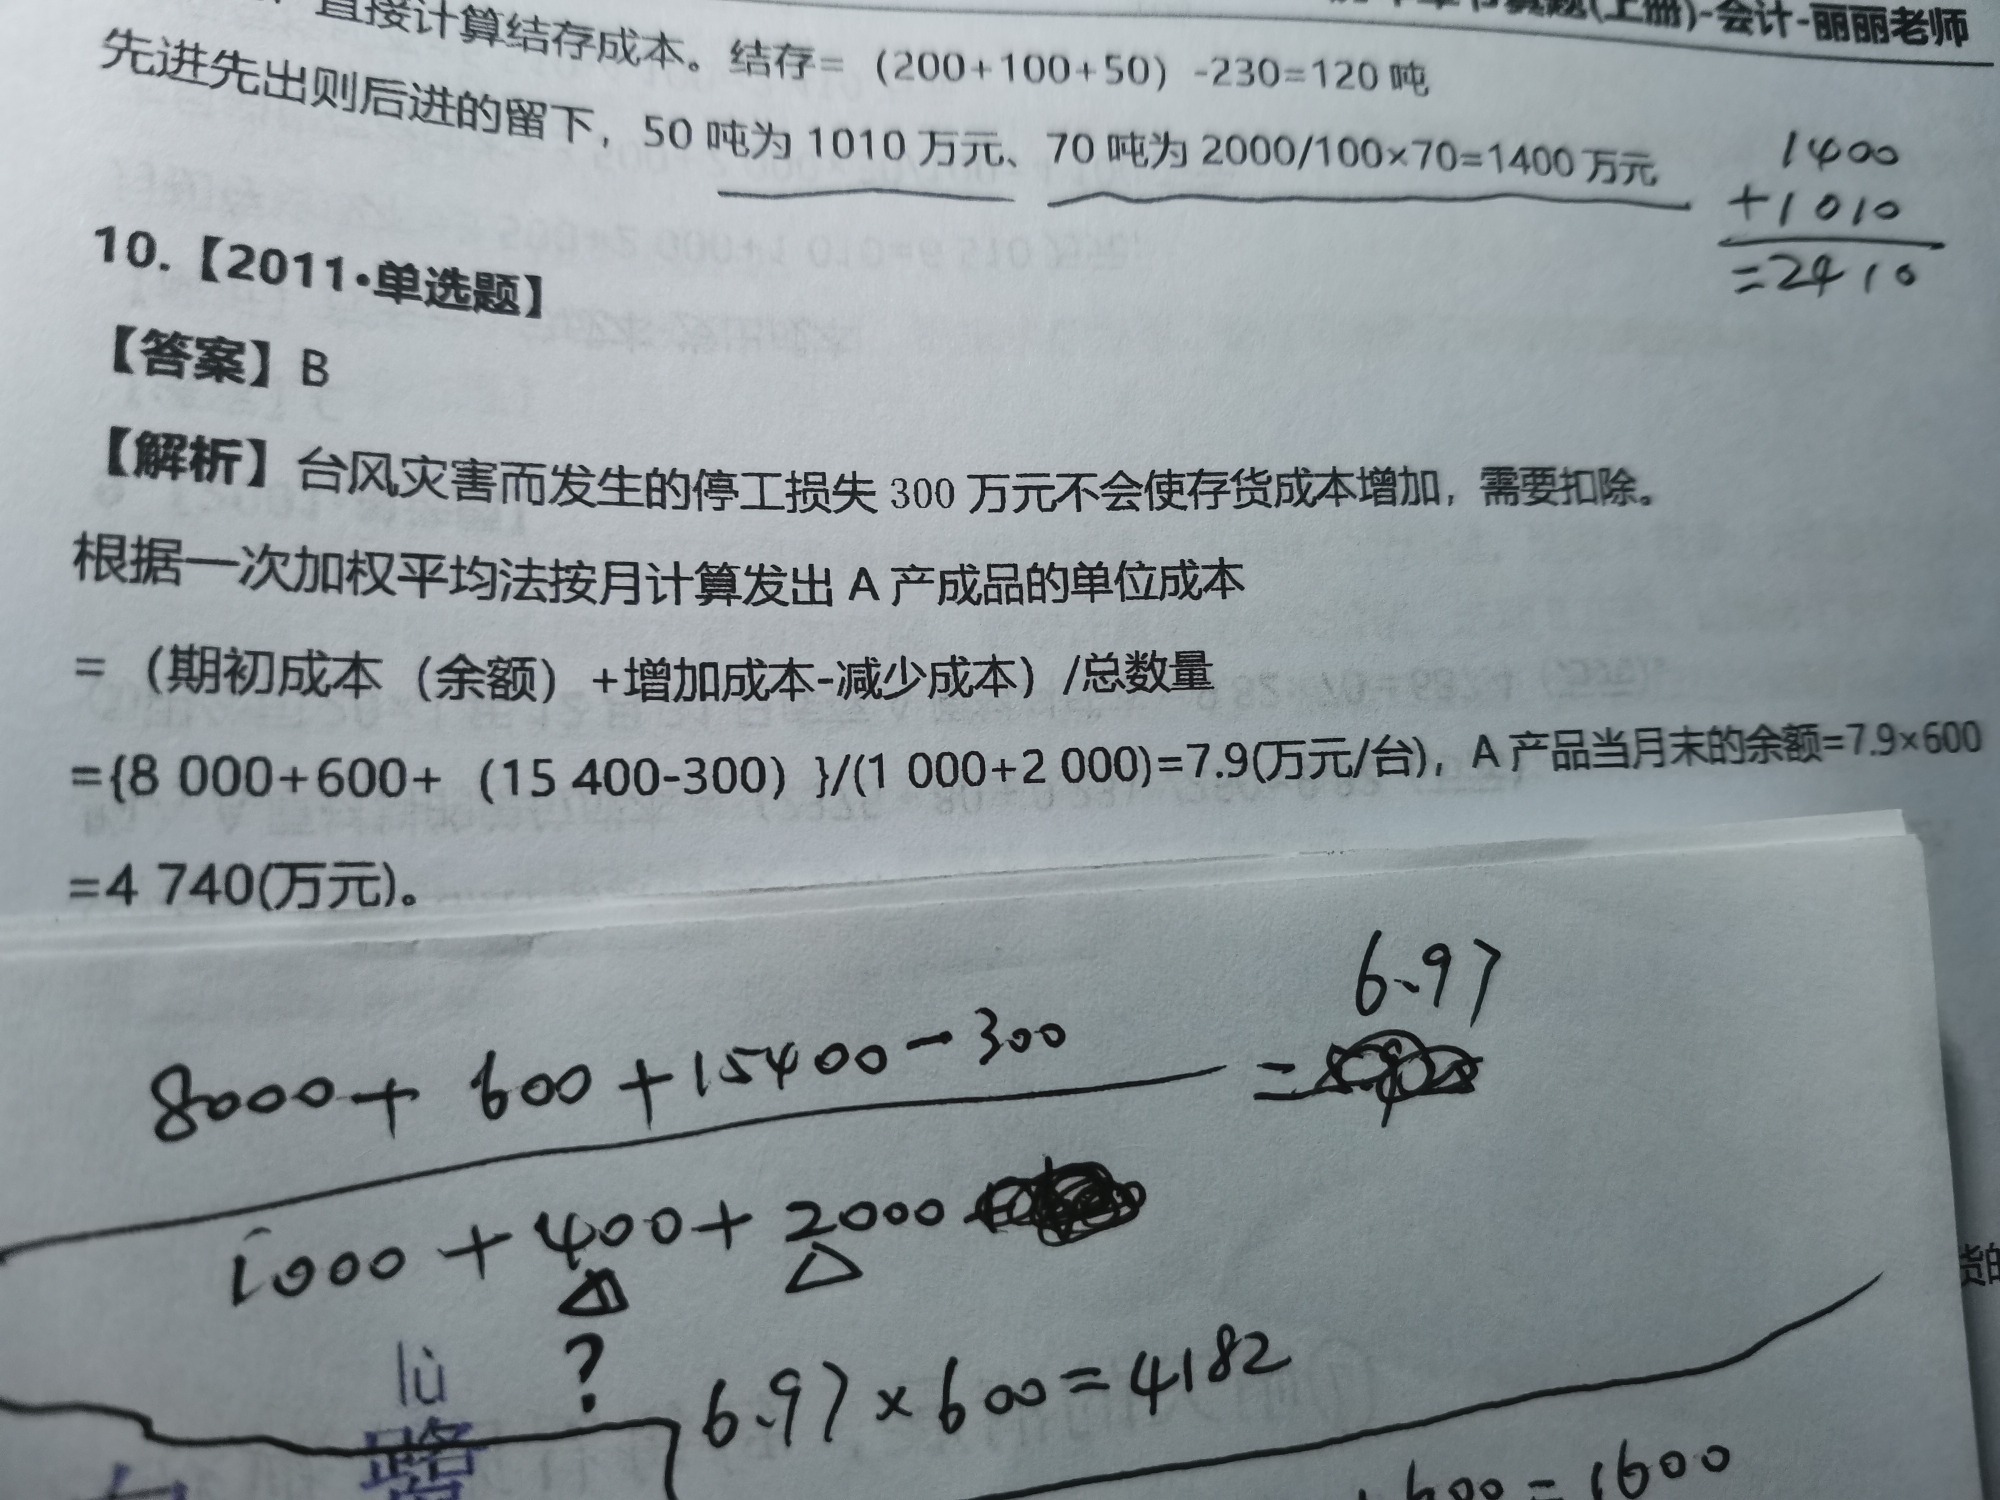 直接计算结存成本。结存=（200+100+50）-230=120 吨
(上册)-会计-丽丽老师
先进先出则后进的留下，50 吨为 1010 万元、70 吨为 2000/100×70=1400 万元
1400
+1010
=2410
10.【2011·单选题】
【答案】B
【解析】台风灾害而发生的停工损失 300 万元不会使存货成本增加，需要扣除。
根据一次加权平均法按月计算发出 A 产成品的单位成本
=（期初成本（余额）+增加成本-减少成本）/总数量
={8 000+600+（15 400-300）}/(1 000+2 000)=7.9(万元/台)，A 产品当月末的余额=7.9×600
=4 740(万元)。
6.97
8000+ 600+15400-300 =
1000+400+2000
?
6.97×600=4182
lù
路
600=1600
货的